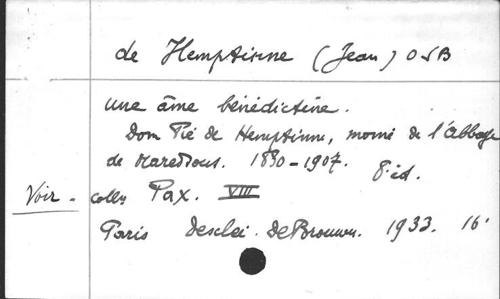 de Hemptinne (Jean) OSB
une âme bénédictine.
Dom Pie de Hemptinne, moine de l'abbaye
de Maredsous. 1880-1907. 8e éd.
Voir - collon Pax. VIII
Paris Desclée. De Brouwer. 1933. 16°